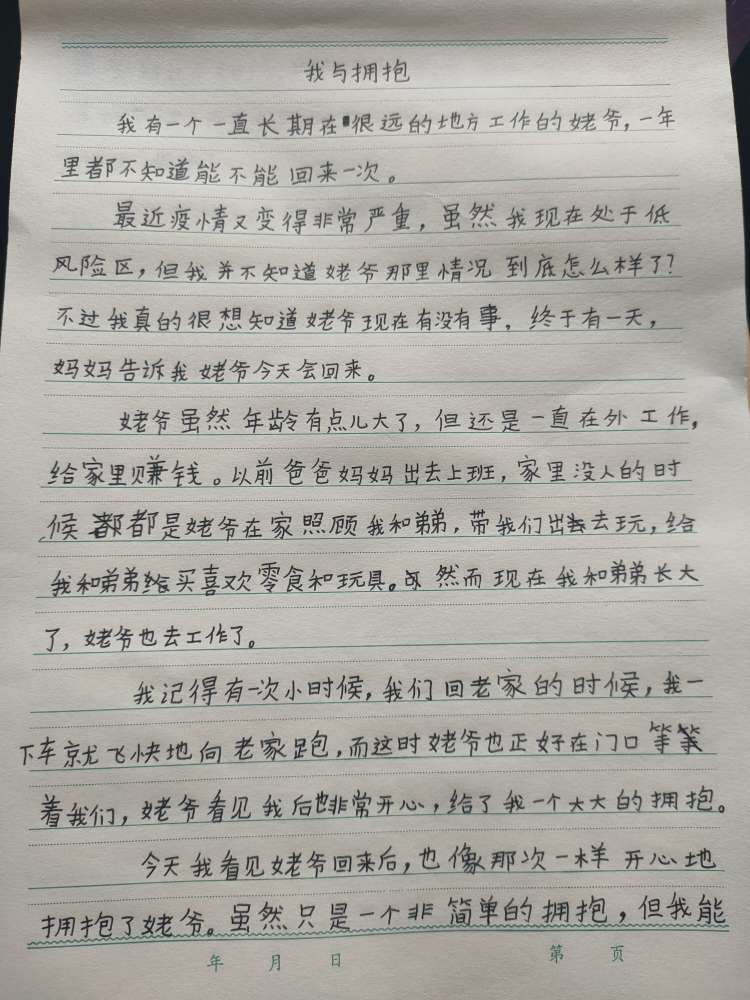 我与拥抱
我有一个一直长期在很远的地方工作的姥爷，一年
里都不知道能不能回来一次。
最近疫情又变得非常严重，虽然我现在处于低
风险区，但我并不知道姥爷那里情况到底怎么样了？
不过我真的很想知道姥爷现在有没有事，终于有一天，
妈妈告诉我姥爷今天会回来。
姥爷虽然年龄有点儿大了，但还是一直在外工作，
给家里赚钱。以前爸爸妈妈出去上班，家里没人的时
候都是姥爷在家照顾我和弟弟，带我们出去玩，给
我和弟弟买喜欢零食和玩具。然而现在我和弟弟长大
了，姥爷也去工作了。
我记得有一次小时候，我们回老家的时候，我一
下车就飞快地向老家跑，而这时姥爷也正好在门口等
着我们，姥爷看见我后也非常开心，给了我一个大大的拥抱。
今天我看见姥爷回来后，也像那次一样开心地
拥抱了姥爷。虽然只是一个非简单的拥抱，但我能
年 月 日 第 页